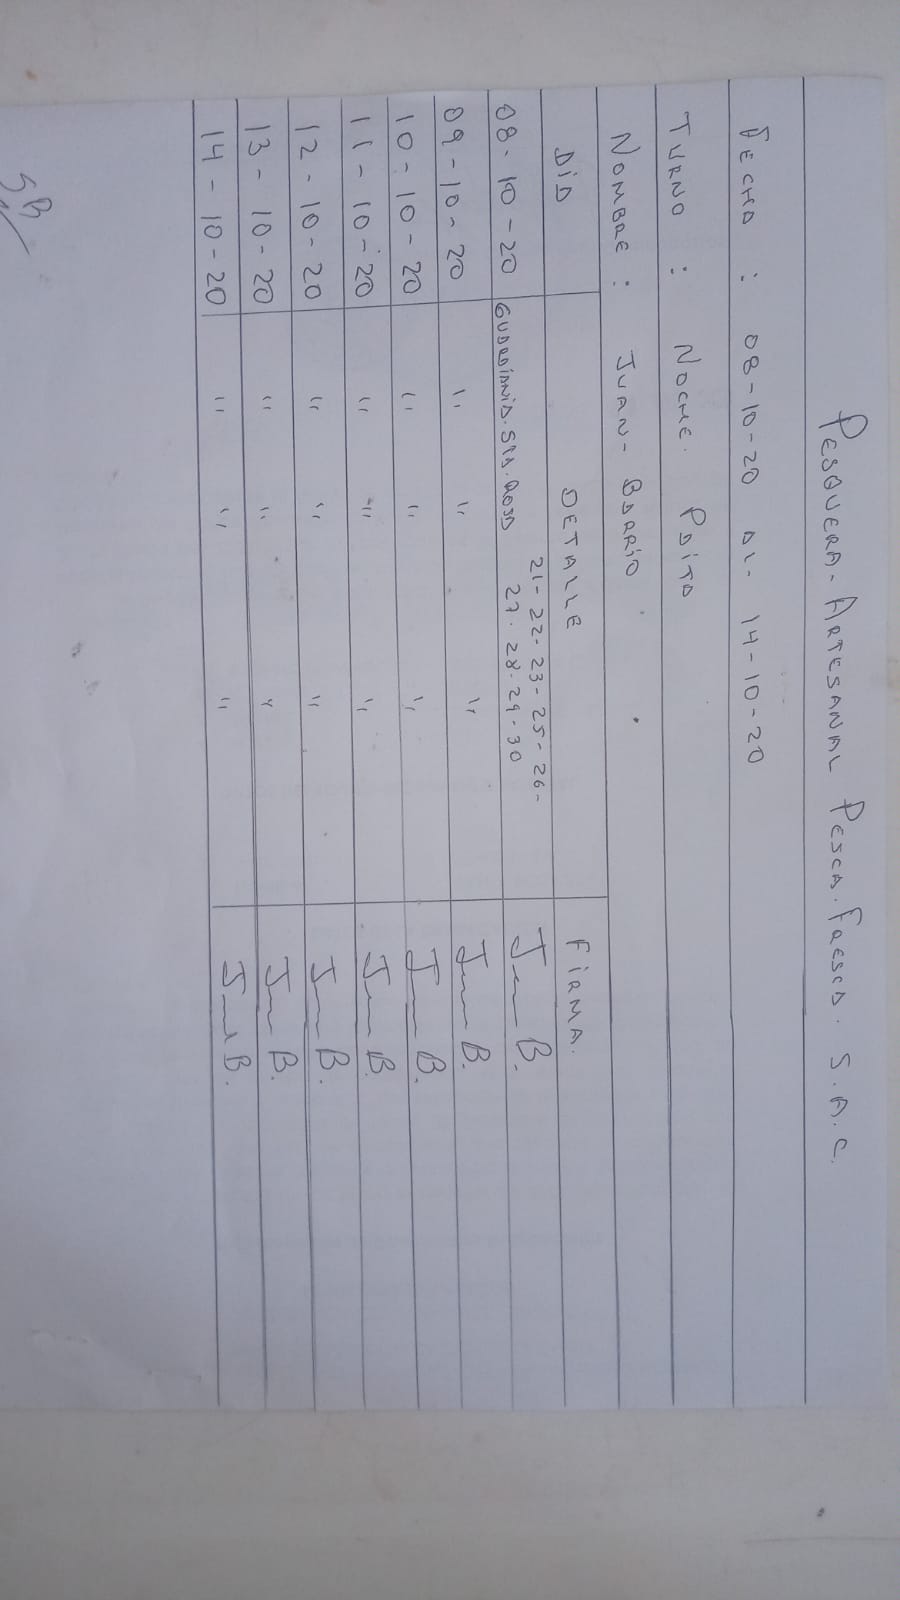 PESQUERA - ARTESANAL PESCA. FRESCA. S.A.C.
FECHA : 08-10-20 AL- 14-10-20
TURNO : NOCHE. PAITA
NOMBRE : JUAN - BARRIO
DIA DETALLE FIRMA.
08-10-20 GUARDIANIA. STA. ROSA 21-22-23-25-26- Juan B.
27-28-29-30
09-10-20 " " " Juan B.
10-10-20 " " " Juan B.
11-10-20 " " " Juan B.
12-10-20 " " " Juan B.
13-10-20 " " " Juan B.
14-10-20 " " " Juan B.